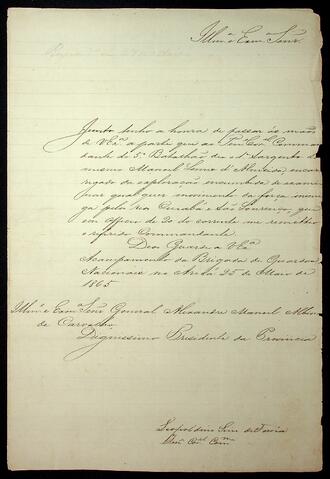 Illmo e Exmo Senr.
Junto tenho a honra de passar ás mãos
de VExa a parte que ao Tene Coel Comman
dante do 5º Batalhão deu o 1º Sargento do
mesmo Manoel Leme d' Almeida, encar
regado da exploração
por qualquer movimento da força inimi
ga pelo rio Cuiabá e São Lourenço, que
em officio de 20 do corrente me remetteo
o referido Commandante.
Deos Guarde a VExa
Acampamento da Brigada de Guardas
Nacionaes no 25 de Maio de
1865
Illmo e Exmo Senr General Alexandre Manoel Albino
de Carvalho
Dignissimo Presidente da Provincia
Leopoldino Lino de Faria
Tene Coel Come